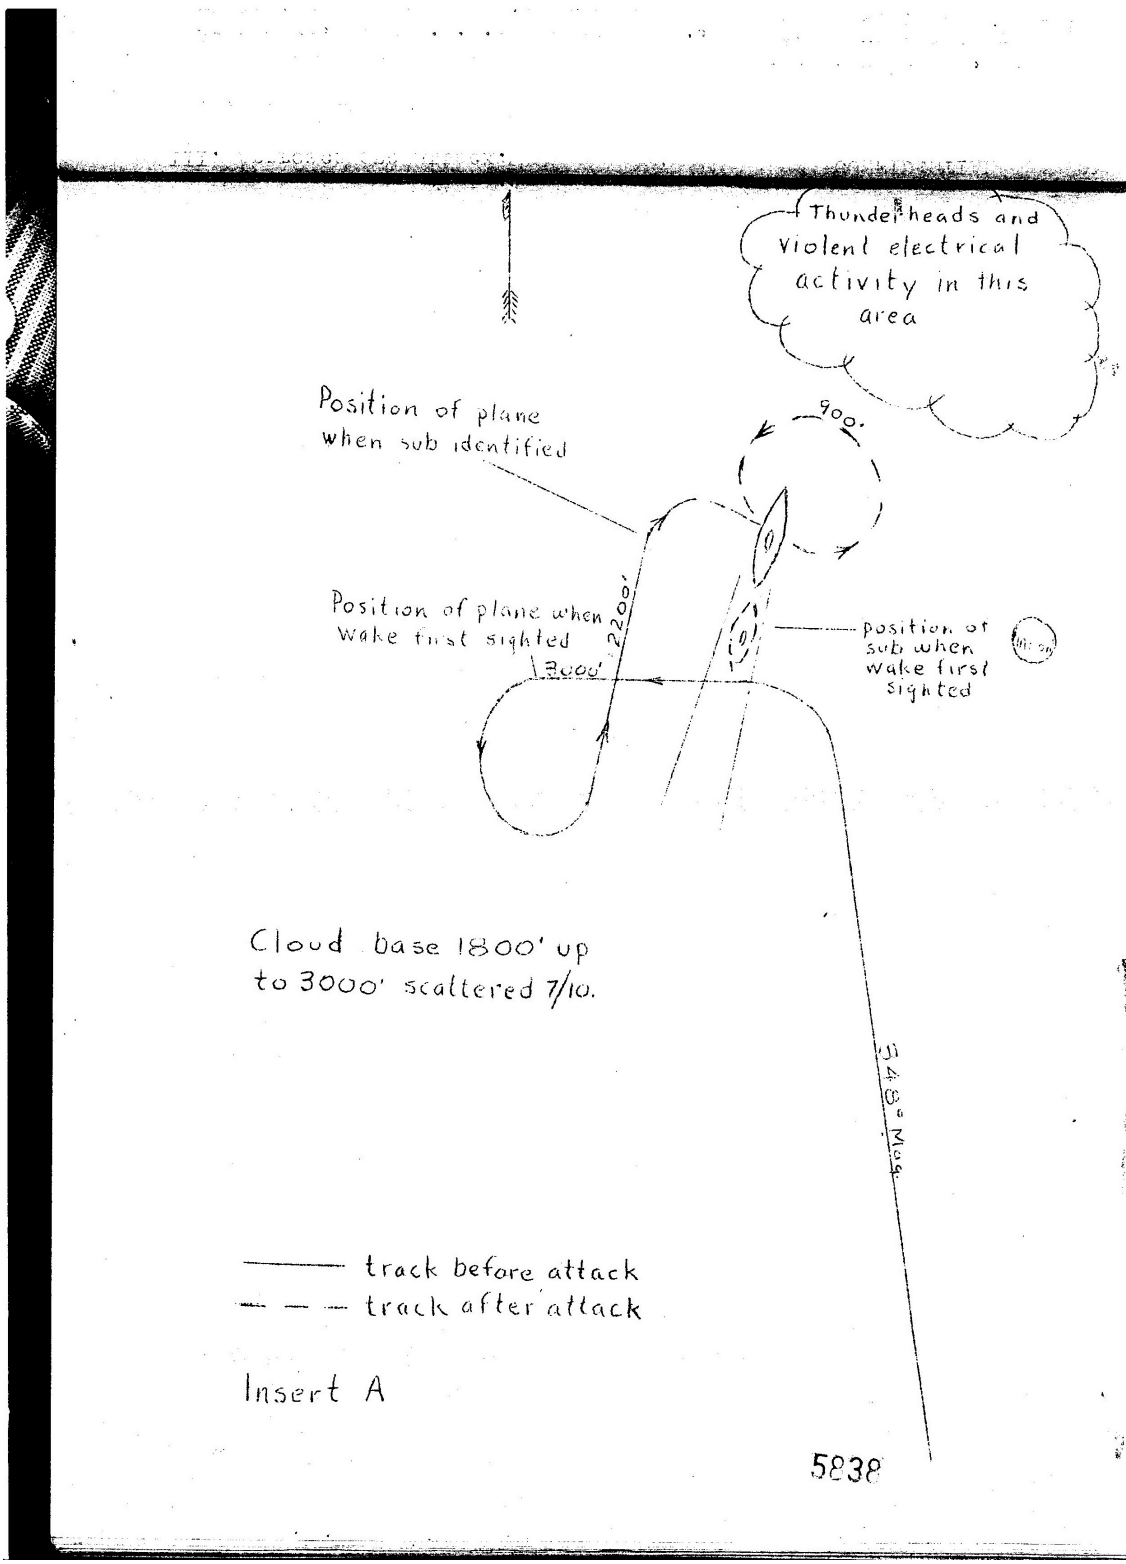 Thunderheads and
violent electrical
activity in this
area
900'
Position of plane
when sub identified
2200'
Position of plane when
wake first sighted
3000'
position of
sub when
wake first
sighted
Cloud base 1800' up
to 3000' scattered 7/10.
348° Mag.
track before attack
track after attack
Insert A
5838